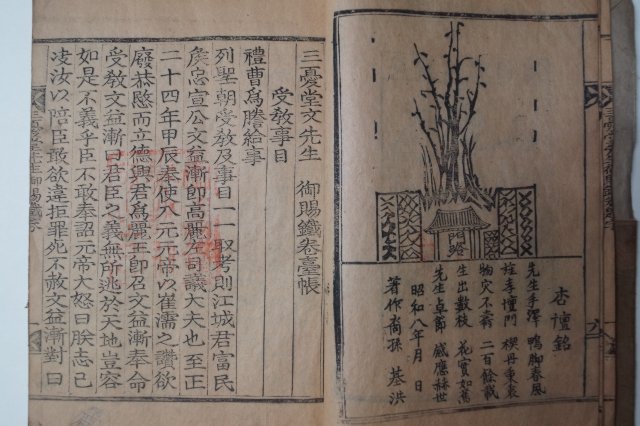 杏壇銘
先生手澤 鴨脚春風
旌孝壇門 楔丹秉衷
物灾不壽 二百餘載
生出數枝 花實如舊
先生卓節 感應赫世
昭和八年 月 日
著作裔孫 基洪
三憂堂文先生 御賜鐵卷臺帳
受教事目
禮曹爲謄給事
列聖朝受教及事目一一取考則江城君富民
侯忠宣公文益漸卽高麗左司議大夫也至正
二十四年甲辰奉使入元元帝以崔濡之讚欲
廢恭愍而立德興君爲麗王卽召文益漸奉命
受敎文益漸曰君臣之義無所逃於天地豈容
如是不義乎臣不敢奉詔元帝大怒曰朕志已
凌汝以陪臣敢欲違拒罪死不赦文益漸對曰